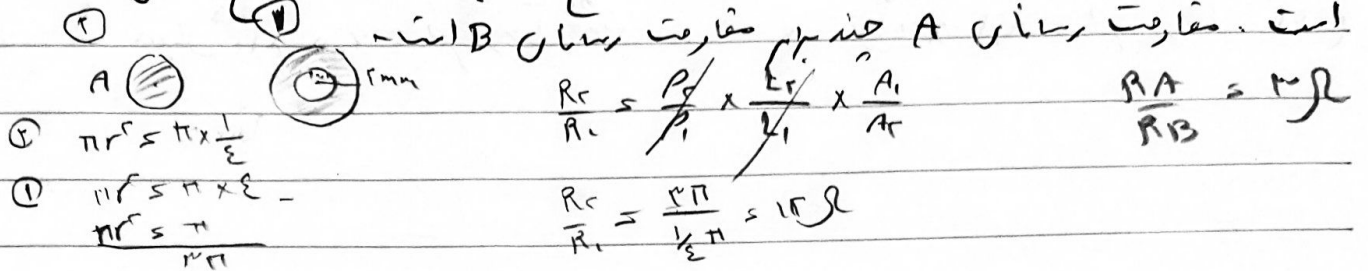 است. مقاومت رسانای A چند برابر مقاومت رسانای B است.
② ①
A ۲mm
R۲/R۱ = ρ۲/ρ۱ × L۲/L۱ × A۱/A۲
RA/RB = ۳Ω
② πr² = π×۱/۴
① πr² = π×۴ -
πr² = π
۳π
R۲/R۱ = ۳π/(۱/۴ π) = ۱۲Ω